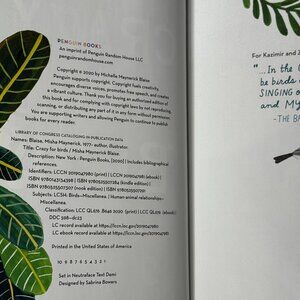 PENGUIN BOOKS
An imprint of Penguin Random House LLC
penguinrandomhouse.com
Copyright © 2020 by Michelle Maynerick Blaise
Penguin supports copyright. Copyright fuels creativity,
encourages diverse voices, promotes free speech, and creates
a vibrant culture. Thank you for buying an authorized edition of
this book and for complying with copyright laws by not reproducing,
scanning, or distributing any part of it in any form without permission.
You are supporting writers and allowing Penguin to continue to publish
books for every reader.
LIBRARY OF CONGRESS CATALOGING-IN-PUBLICATION DATA
Names: Blaise, Misha Maynerick, 1977- author, illustrator.
Title: Crazy for birds / Misha Maynerick Blaise.
Description: New York : Penguin Books, [2020] | Includes bibliographical
references.
Identifiers: LCCN
Subjects: LCSH: Birds—Miscellanea. | Human-animal relationships—
Miscellanea.
Classification: LCC QL676 .B645 2020 (print) | LCC QL676 (ebook) |
DDC 598—dc23
LC record available at https://lccn.loc.gov/2019047980
LC ebook record available at https://lccn.loc.gov/2019047981
Printed in the United States of America
10 9 8 7 6 5 4 3 2 1
Set in Neutraface Text Demi
Designed by Sabrina Bowers
For Kazimir and J
"...In the G
be birds
SINGING o
and MY
-THE BA